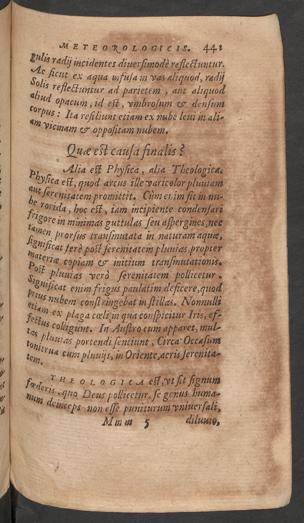 METEOROLOGICIS. 441
gulis radij incidentes diuersimodè reflectuntur.
Ac sicut ex aqua infusa in vas aliquod, radij
Solis reflectuntur ad parietem, aut aliquod
aliud opacum, id est, vmbrosum & densum
corpus: Ita resiliunt etiam ex nube leui in ali-
am vicinam & oppositam nubem.
Quæ est causa finalis?
Alia est Physica, alia Theologica.
Physica est, quod arcus ille varicolor pluuiam
aut serenitatem promittit. Cùm enim fit in nu-
be rorida, hoc est, iam incipiente condensari
frigore in minimas guttulas seu aspergines, nec
tamen prorsus transmutata in naturam aquæ,
significat ferè post serenitatem pluuias, propter
materiæ copiam & initium transmutationis.
Post pluuias verò serenitatem pollicetur.
Significat enim frigus paulatim deficere, quod
prius nubem constringebat in stillas. Nonnulli
etiam ex plaga cœli in qua conspicitur Iris, ef-
fectus colligunt. In Austro cum apparet, mul-
tas pluuias portendi sentiunt, Circa Occasum
tonitrua cum pluuijs, in Oriente, aeris serenita-
tem.
THEOLOGICA est, vt sit signum
fœderis, quo Deus pollicetur, se genus huma-
num deinceps non esse puniturum vniuersali,
Mmm 5 diluuio,